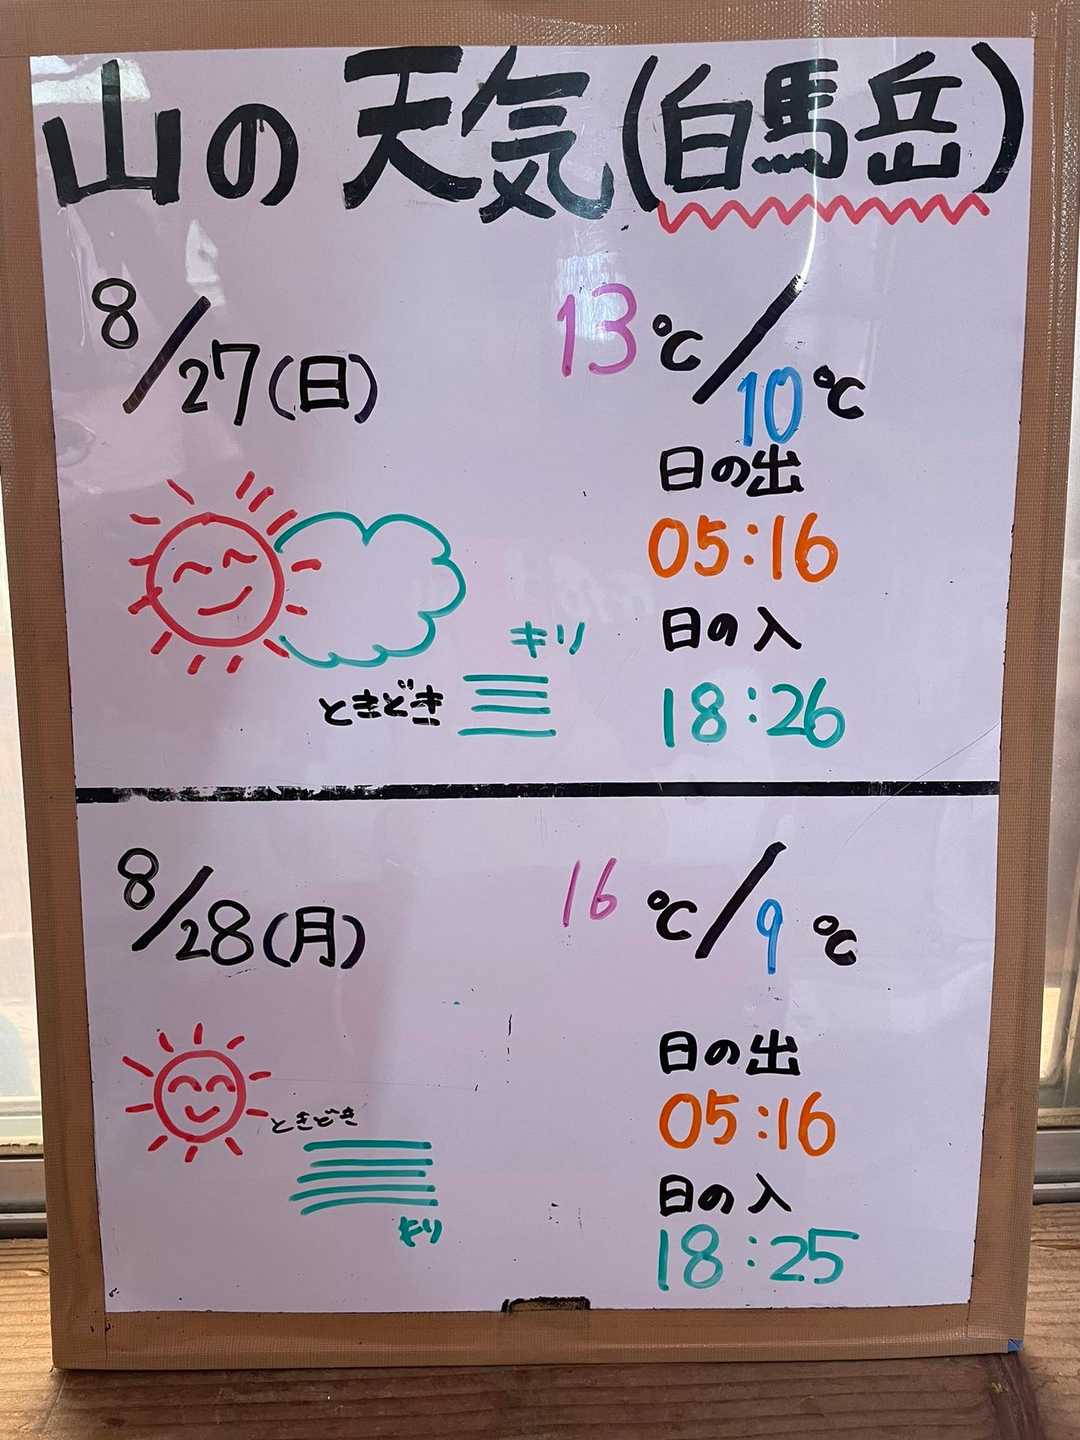 山の天気(白馬岳)
8/27(日)
13℃/10℃
日の出
05:16
日の入
18:26
キリ
ときどき
8/28(月)
16℃/9℃
日の出
05:16
日の入
18:25
ときどき
キリ